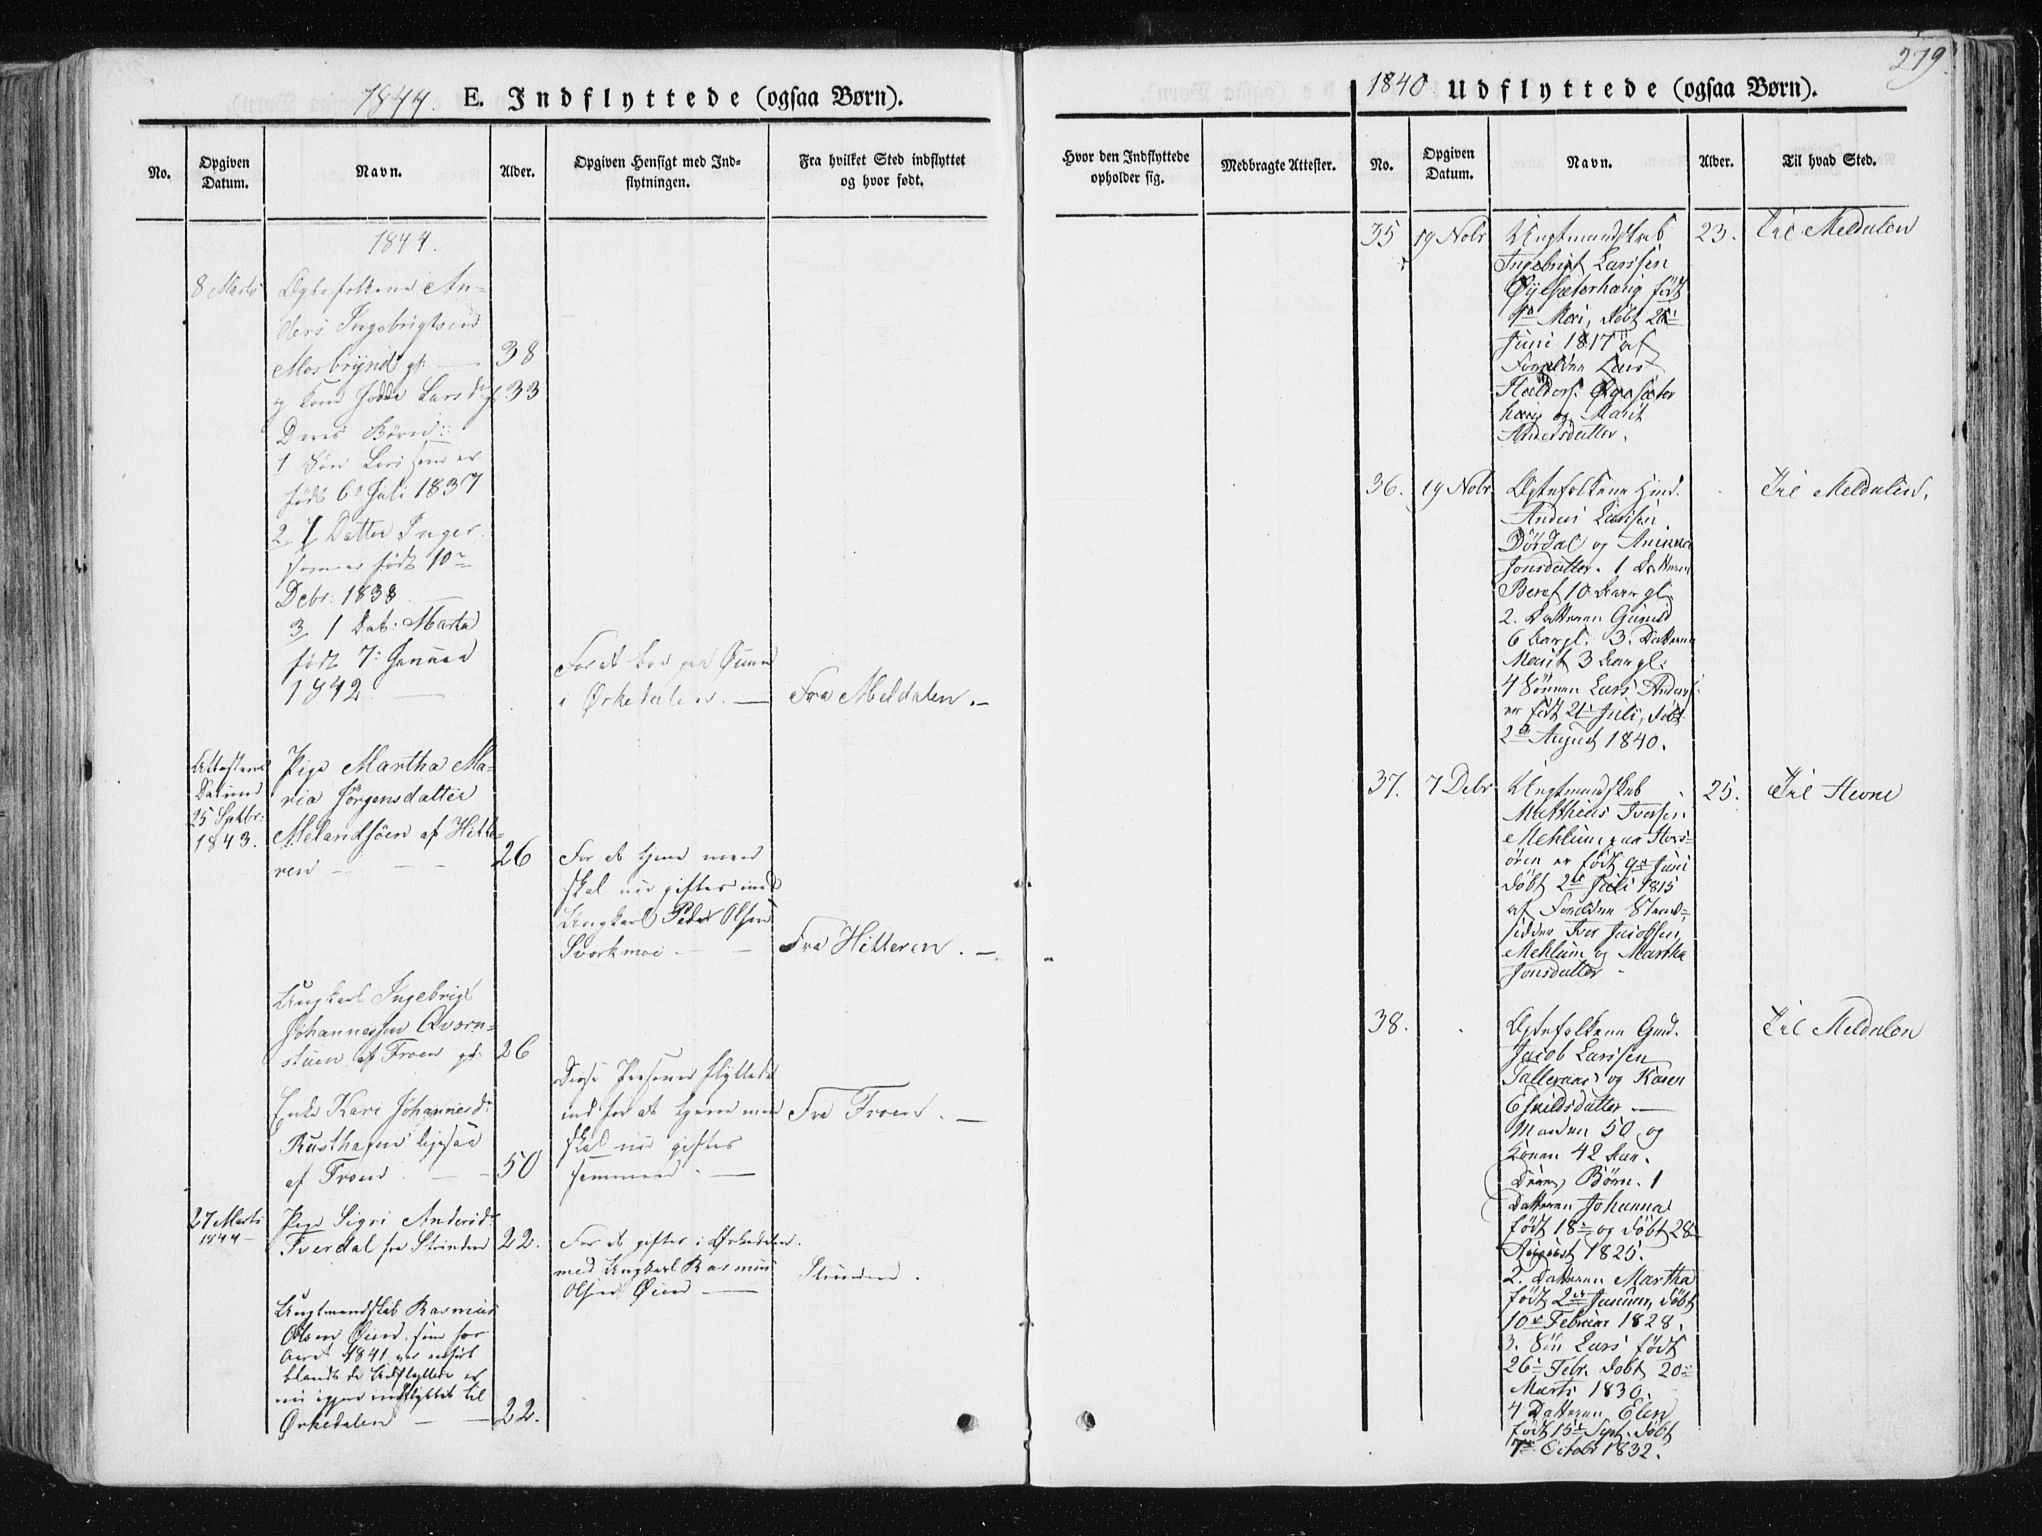 1844
E. Indflyttede (ogsaa Børn).
No.
Opgiven
Datum.
Navn.
Alder.
Opgiven Hensigt med Ind-
flytningen.
Fra hvilket Sted indflyttet
og hvor født.
1844.
8 Marts
Ægtefolkene An-
ders Ingebrigtsen
38
og Kone Larsdr 33
Deres Børn:
1 Søn Lars som er
født 6te Juli 1837
2 1 Datter Inger
som er født 10de
Debr: 1838
3 1 Dat: Marta
født 7: Januar
1842
For at boe paa
i Ørkedalen. —
Fra Meldalen. —
Attestens
Datum
25 Septbr:
1843.
Pige Martha Ma-
ria Jørgensdatter
Melandsöen af Hitte-
ren — — 26
For at tjene men
skal nu giftes med
Ungkarl Peder Olsen
Svorkmoe — —
Fra Hitteren. —
Ungkarl Ingebrigt
Johannessen Qvorn-
stuen af Froen gl: 26
Enke Kari Johannesdr
Rusthagen ligesaa
af Froen — — 50
Disse Personer flyttede
ind for at tjene men
skal nu giftes
sammen. —
Fra Froen. —
27 Marts
1844 —
Pige Sigri Andersdr
Tverdal fra Strinden 22.
For at giftes i Ørkedalen
med Ungkarl Rasmus
Olsen Øien —
Strinden.
Ungtmandskab Rasmus
Olsen Øien, som for
Aaret 1841 var anført
blandt de Udflyttede er
nu igjen indflyttet til
Ørkedalen — — 22.
279.
1840 Udflyttede (ogsaa Børn).
Hvor den Indflyttede
opholder sig.
Medbragte Attester.
No.
Opgiven
Datum.
Navn.
Alder.
Til hvad Sted.
35
19 Nobr
Ungtmandskab
Ingebrigt Larssen
Øyesæterhaug født
Mai, døbt
Juni 1817 af
Forældre Lars
Haldors. Øyesæter
haug og Marit
Andersdatter.
23.
Til Meldalen
36.
19 Nobr
Ægtefolkene Huusmd.
Anders Larssen
Dørdal og
Jonsdatter. 1 Datteren
Beret 10 Aar gl.
2. Datteren Gunild
6 Aar gl. 3. Datteren
Marit 3 Aar gl:
4 Sønnen Lars Anders.
er født 21de Juli, døbt
2den August 1840.
Til Meldalen.
37.
7 Debr
Ungtmandskab
Matthias Iversen
Mehlum paa Stors-
øren er født 9de Juni
døbt 2den Juli 1815
af Forældre Strand-
sidder Iver Jacobsen
Mehlum og Martha
Jonsdatter
25.
Til Hevne
38.
Ægtefolkene Gmd.
Jacob Larssen
Talleraas og Karen
Eskildsdatter —
Manden 50 og
Konen 42 Aar.
Deres Børn. 1
Datteren Johanna
født 18de og døbt 28de
August 1825.
2. Datteren Martha
født 2den Januar, døbt
10de Februar 1828.
3. Søn Lars født
26de Febr. døbt 20de
Marts 1830.
4 Datteren Elen
født 15de Sept. døbt
7de October 1832.
Til Meldalen